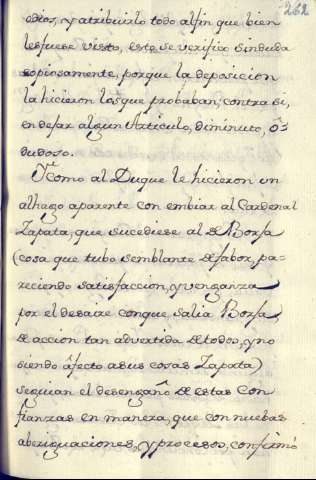 262
odios, y atribuirlo todo al fin que bien
les fuese visto, este se verifico sin duda
copiosamente, porque la deposicion
la hicieron los que probaban, contra si,
en dejar algun Articulo, diminuto, ô
dudoso.
Y como al Duque le hicieron un
alhago aparente con embiar al Cardenal
Zapata, que sucediese al de Borja
(cosa que tubo semblante de fabor, pa-
reciendo satisfaccion, y venganza
por el desaire con que salia Borja,
de accion tan advertida de todos, y no
siendo âfecto a sus cosas Zapata)
seguian el desengaño de estas con
fianzas en manera, que con nuebas
aberiguaciones, y procesos, confirmó